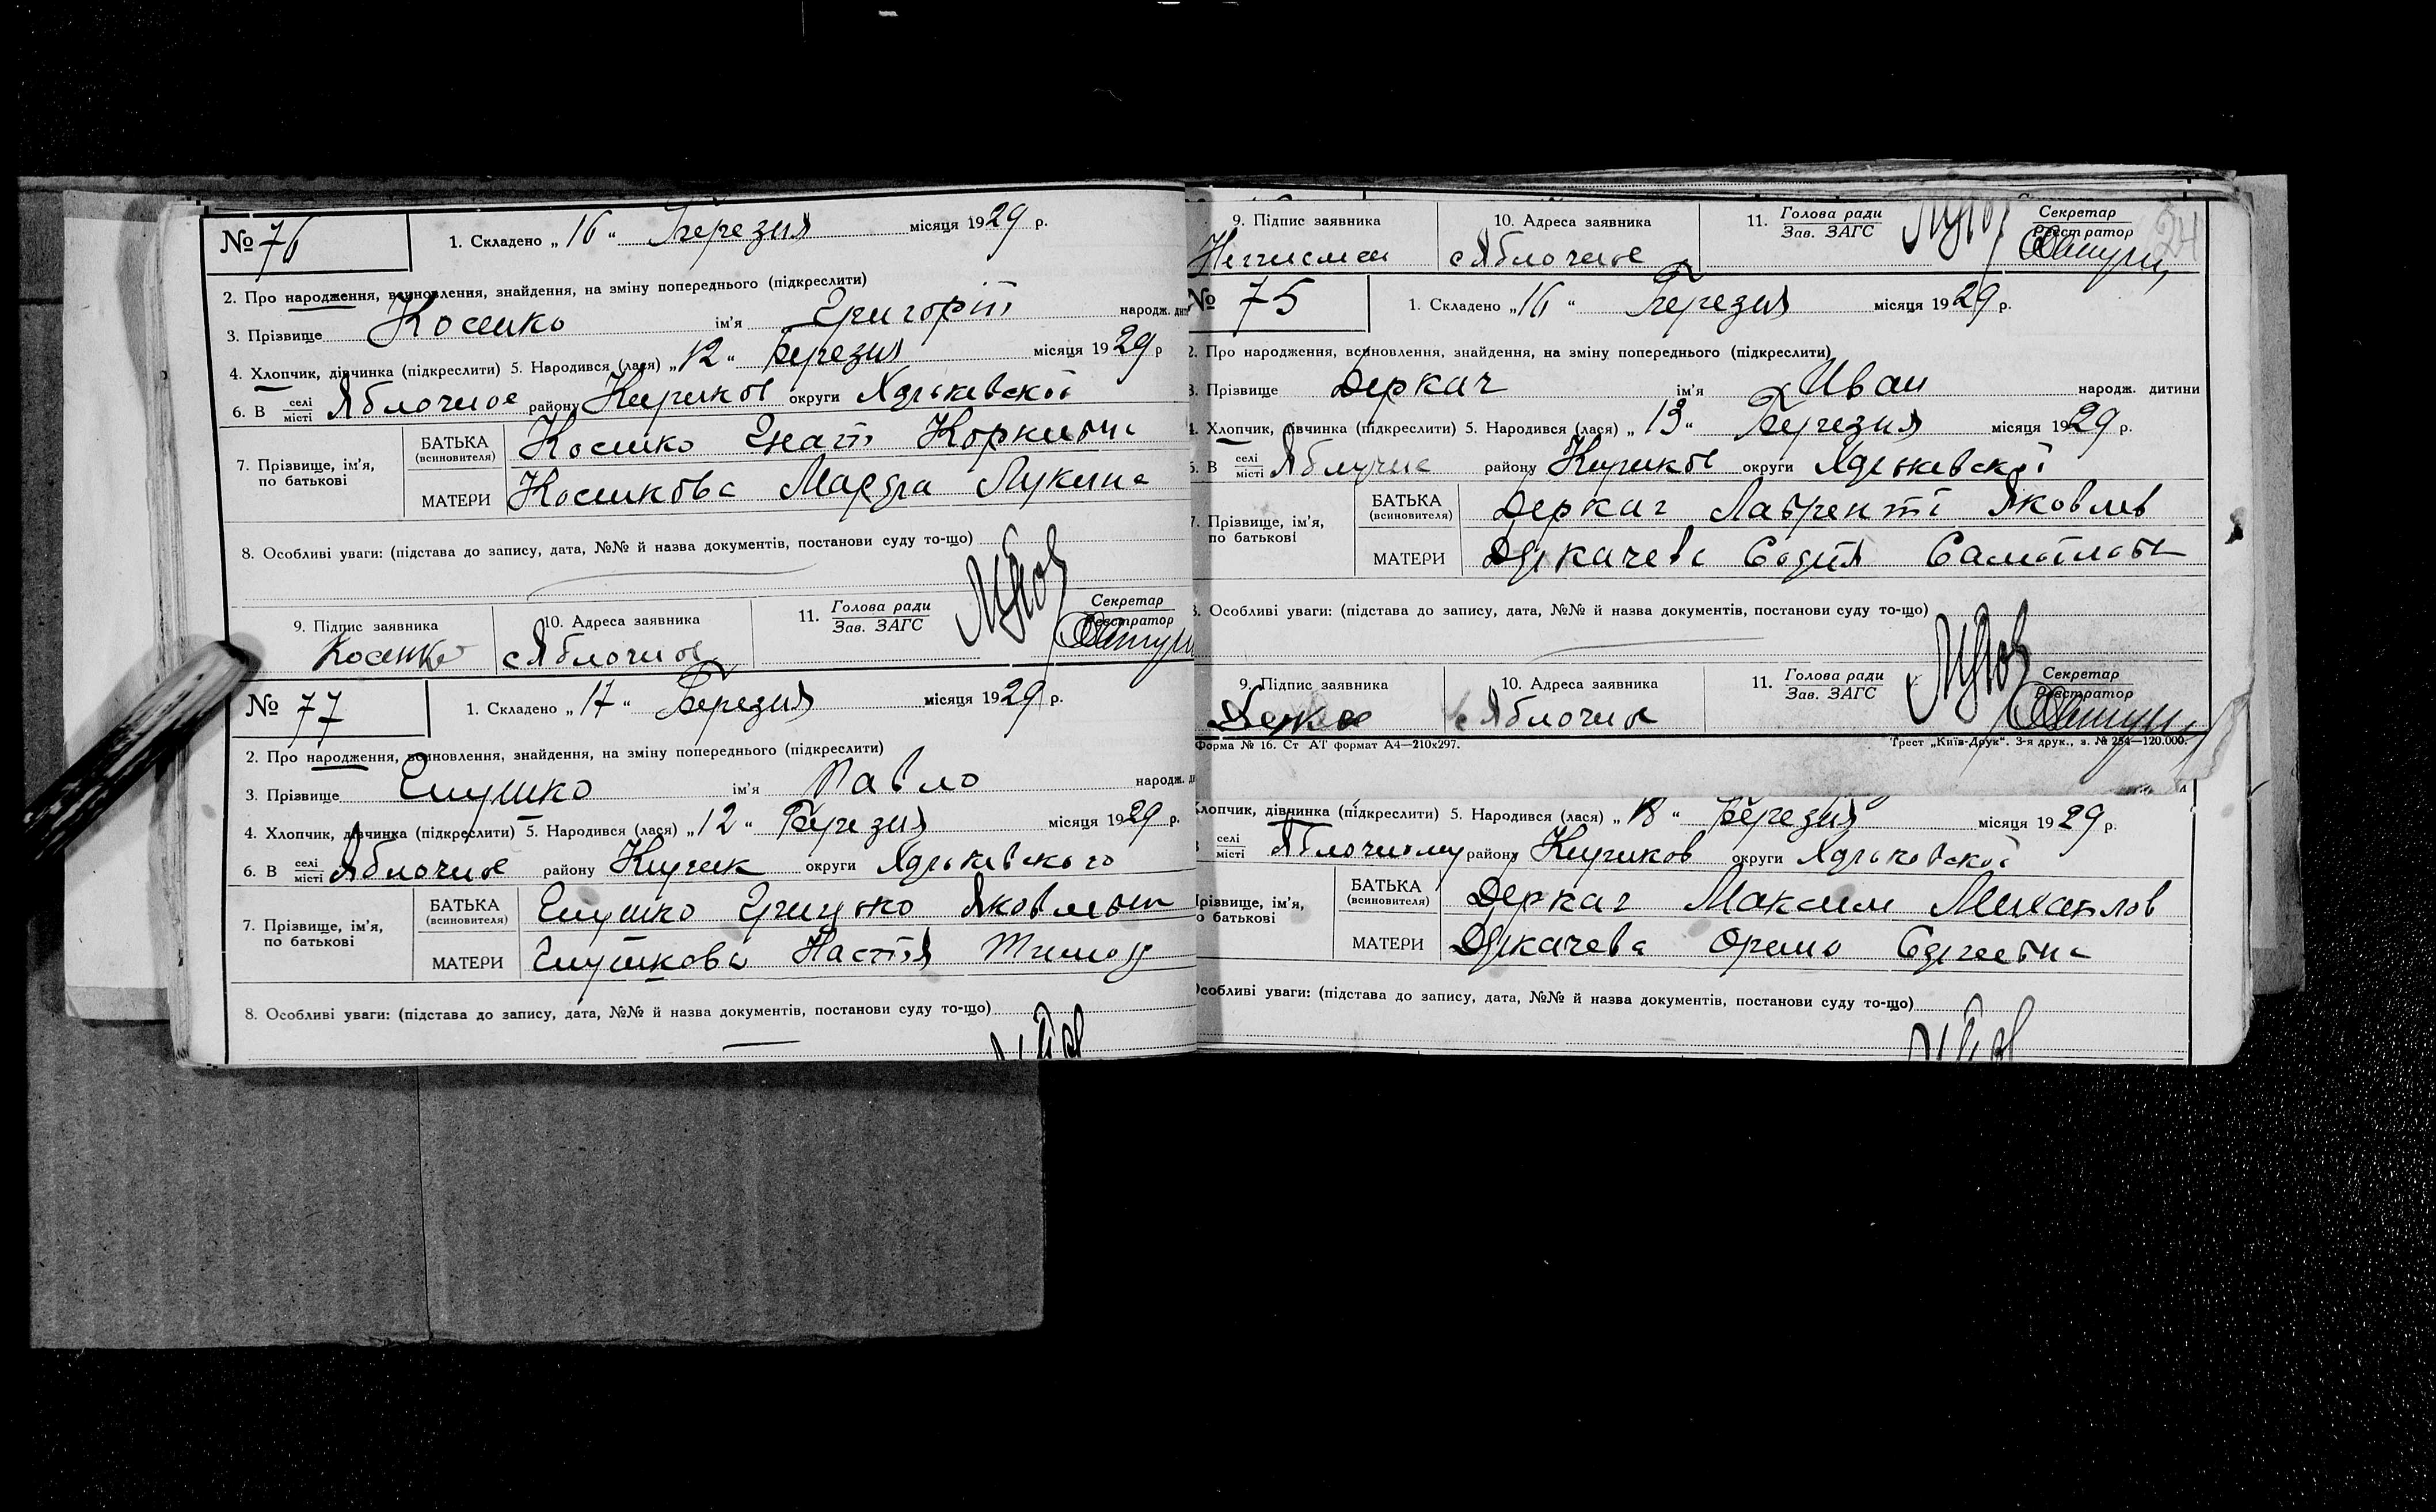 № 76
1. Складено „ 16 “ Березня місяця 1929 р.
2. Про народження, всиновлення, знайдення, на зміну попереднього (підкреслити)
3. Прізвище Косенко ім'я Григорій народж.
4. Хлопчик, дівчинка (підкреслити) 5. Народився (лася) „ 12 “ Березня місяця 1929 р
6. В селі місті Яблочное району Кириков округи Харьковской
7. Прізвище, ім'я, по батькові
БАТЬКА (всиновителя) Косенко Гнат
МАТЕРИ Косенкова Марфа Лукина
8. Особливі уваги: (підстава до запису, дата, №№ й назва документів, постанови суду то-що)
9. Підпис заявника 10. Адреса заявника 11. Голова ради Зав. ЗАГС Секретар Реєстратор
Косенко с Яблочное
№ 77
1. Складено „ 17 “ Березня місяця 1929 р.
2. Про народження, всиновлення, знайдення, на зміну попереднього (підкреслити)
3. Прізвище ім'я Павло народж.
4. Хлопчик, дівчинка (підкреслити) 5. Народився (лася) „ 12 “ Березня місяця 1929 р.
6. В селі місті Яблочное району Кирик округи Харьковского
7. Прізвище, ім'я, по батькові
БАТЬКА (всиновителя) Грицько
МАТЕРИ Настя
8. Особливі уваги: (підстава до запису, дата, №№ й назва документів, постанови суду то-що)
9. Підпис заявника 10. Адреса заявника 11. Голова ради Зав. ЗАГС Секретар Реєстратор 24
с Яблочное
№ 75
1. Складено „ 16 “ Березня місяця 1929 р.
2. Про народження, всиновлення, знайдення, на зміну попереднього (підкреслити)
3. Прізвище Деркач ім'я Иван народж. дитини
4. Хлопчик, дівчинка (підкреслити) 5. Народився (лася) „ 13 “ Березня місяця 1929 р.
6. В селі місті району Кириков округи Харьковской
7. Прізвище, ім'я, по батькові
БАТЬКА (всиновителя) Деркач Лаврентій Яковлев
МАТЕРИ Деркачева Софія
8. Особливі уваги: (підстава до запису, дата, №№ й назва документів, постанови суду то-що)
9. Підпис заявника 10. Адреса заявника 11. Голова ради Зав. ЗАГС Секретар Реєстратор
с Яблочное
Форма № 16. Ст АТ формат А4—210х297. Трест „Київ-Друк“. 3-я друк., з. № 254—120.000.
Хлопчик, дівчинка (підкреслити) 5. Народився (лася) „ “ Березня місяця 1929 р.
селі місті району Кириков округи Харьковской
Прізвище, ім'я, по батькові
БАТЬКА (всиновителя) Деркач Максим Михайлов
МАТЕРИ Деркачева
Особливі уваги: (підстава до запису, дата, №№ й назва документів, постанови суду то-що)